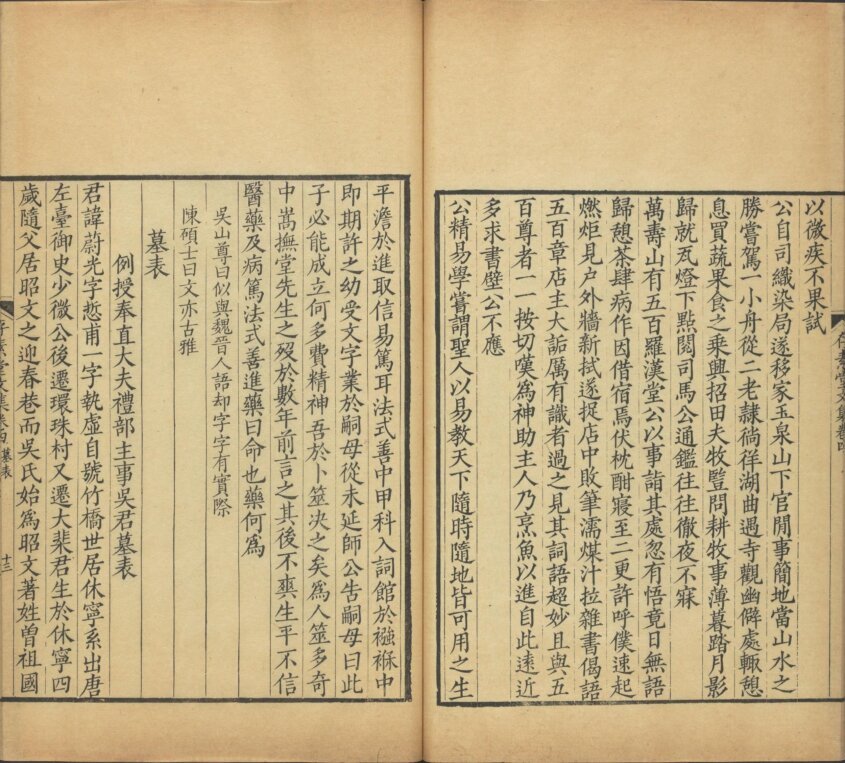 以微疾不果試
公自司織染局遂移家玉泉山下官閒事簡地當山水之
勝嘗駕一小舟從二老隸徜徉湖曲遇寺觀幽僻處輒憩
息買蔬果食之乘興招田夫牧豎問耕牧事薄暮踏月影
歸就瓦燈下點閱司馬公通鑑往往徹夜不寐
萬壽山有五百羅漢堂公以事詣其處忽有悟竟日無語
歸憩茶肆病作因借宿焉伏枕酣寢至二更許呼僕速起
燃炬見户外牆新拭遂捉店中敗筆濡煤汁拉雜書偈語
五百章店主大詬厲有識者過之見其詞語超妙且與五
百尊者一一按切嘆爲神助主人乃烹魚以進自此遠近
多求書壁公不應
公精易學嘗謂聖人以易教天下隨時隨地皆可用之生
存素堂文集卷四
平澹於進取信易篤耳法式善中甲科入詞館於襁褓中
即期許之幼受文字業於嗣母從未延師公告嗣母曰此
子必能成立何多費精神吾於卜筮决之矣爲人筮多奇
中嵩撫堂先生之歿於數年前言之其後不爽生平不信
醫藥及病篤法式善進藥曰命也藥何爲
吳山尊曰似與魏晉人語却字字有實際
陳碩士曰文亦古雅
墓表
例授奉直大夫禮部主事吳君墓表
君諱蔚光字悊甫一字執虛自號竹橋世居休寧系出唐
左臺御史少微公後遷環珠村又遷大斐君生於休寧四
歲隨父居昭文之迎春巷而吳氏始爲昭文著姓曾祖國
存素堂文集卷四 墓表 十三